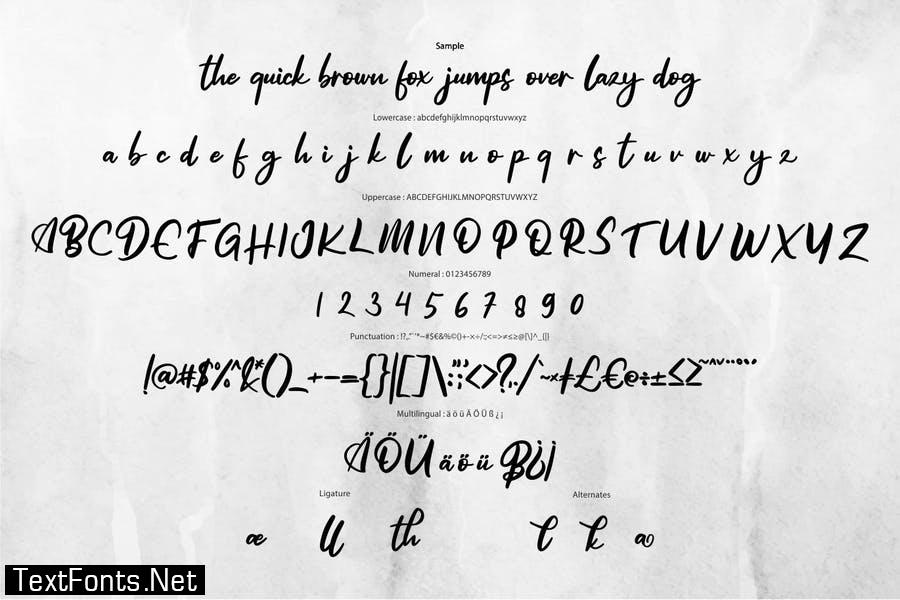 Sample
the quick brown fox jumps over lazy dog
Lowercase : abcdefghijklmnopqrstuvwxyz
a b c d e f g h i j k l m n o p q r s t u v w x y z
Uppercase : ABCDEFGHIJKLMNOPQRSTUVWXYZ
A B C D E F G H I J K L M N O P Q R S T U V W X Y Z
Numeral : 0123456789
1 2 3 4 5 6 7 8 9 0
Punctuation : !?,."`'*~#$€&%©()+-×÷/:;<=>≠≤≥@[\]^_{|}
!@#$%^&*()_+-={}|[]\:";'<>?,./`~×≠£€©÷±≤≥~^˘
Multilingual : ä ö ü Ä Ö Ü ß ¿ ¡
ÄÖÜäöüß¿¡
Ligature Alternates
æ ll th t k a
TextFonts.Net